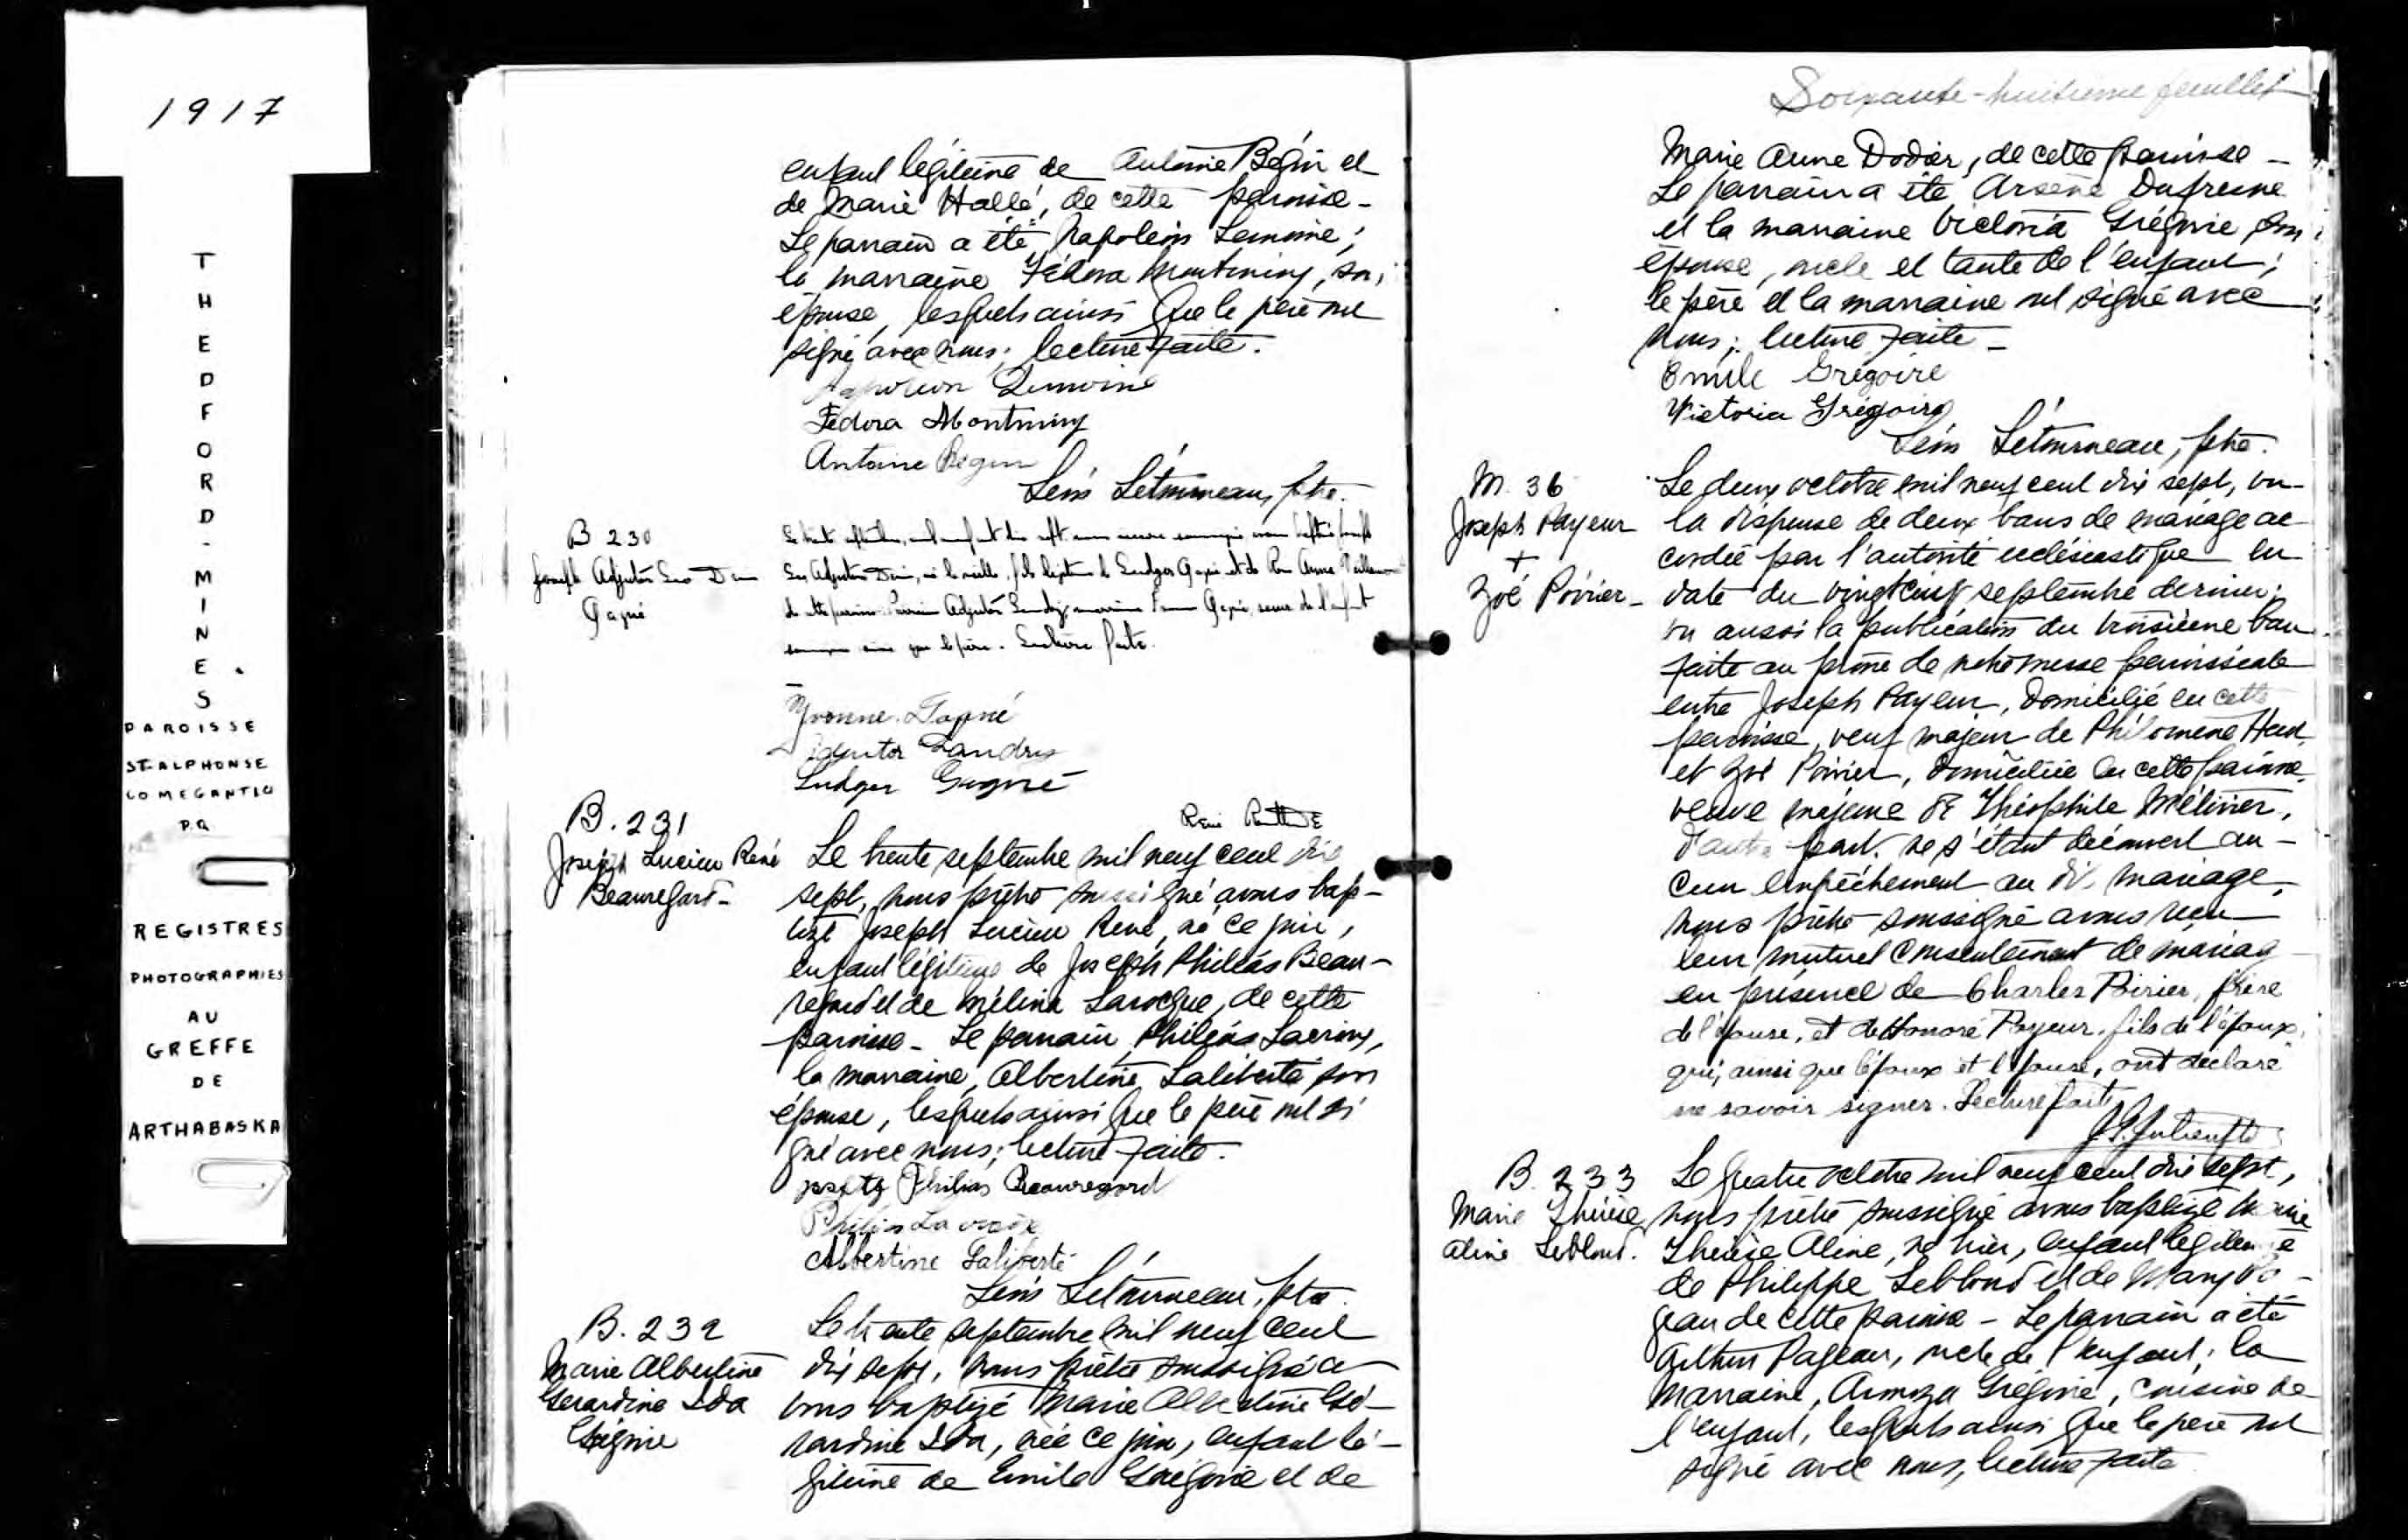 1917
THEDFORD-MINES
PAROISSE
ST-ALPHONSE
CO MEGANTIC
P.Q.
REGISTRES
PHOTOGRAPHIES
AU
GREFFE
DE
ARTHABASKA
enfant légitime de Antoine Bégin et
de Marie Hallé, de cette paroisse -
Le parrain a été Napoléon Lemoine;
la marraine Fédora Montminy, son
épouse, lesquels ainsi que le père ont
signé avec nous; lecture faite.
Napoleon Lemoine
Fedora Montminy
Antoine Bégin
Léon Létourneau, ptre.
B 230
Joseph Adjutor Leo
Gagné
Le trente septembre, mil neuf cent dix sept, nous avons baptisé Joseph
Leo Adjutor, né la veille, fils légitime de Ludger Gagné et de Rose Anna
de cette paroisse. Parrain Adjutor Landry, marraine Gagné, soeur de l'enfant
ainsi que le père. Lecture faite.
Yvonne Gagné
Adjutor Landry
Ludger Gagné
B. 231
Joseph Lucien René
Beauregard -
René
Le trente septembre mil neuf cent dix
sept, nous prêtre soussigné avons bap-
tizé Joseph Lucien René, né ce jour,
enfant légitime de Joseph Philias Beau-
regard et de Mélina Larocque, de cette
paroisse - Le parrain, Philias Lacroix,
la marraine, Albertine Laliberté son
épouse, lesquels ainsi que le père ont si
gné avec nous; lecture faite.
Philias Beauregard
Philias Lacroix
Albertine Laliberté
Léon Létourneau, ptre.
B. 232
Marie Albertine
Gerardine Ida
Grégoire
Le trente septembre mil neuf cent
dix sept, nous prêtre soussigné a-
vons baptizé Marie Albertine Gé-
rardine Ida, née ce jour, enfant lé-
gitime de Emile Grégoire et de
Soixante-huitième feuillet
Marie Anne Dodier, de cette paroisse -
Le parrain a été Arsène Dufresne
et la marraine Victoria Grégoire son
épouse, oncle et tante de l'enfant;
le père et la marraine ont signé avec
nous; lecture faite -
Emile Grégoire
Victoria Grégoire
Léon Létourneau, ptre.
M. 36
Joseph Payeur
+
Zoé Poirier -
Le deux octobre mil neuf cent dix sept, vu
la dispense de deux bans de mariage ac
cordée par l'autorité ecclésiastique en
date du vingt cinq septembre dernier;
vu aussi la publication du troisième ban
faite au prône de notre messe paroissiale
entre Joseph Payeur, domicilié en cette
paroisse, veuf majeur de Philomène
et Zoé Poirier, domiciliée en cette paroisse,
veuve majeure de Théophile Métivier,
d'autre part. ne s'étant découvert au-
cun empêchement au dit mariage,
nous prêtre soussigné avons reçu
leur mutuel consentement de mariag
en présence de Charles Poirier, frère
de l'épouse, et de Honoré Payeur, fils de l'époux,
qui, ainsi que l'époux et l'épouse, ont déclaré
ne savoir signer. Lecture faite.
B. 233
Marie Thérèse
Aline Leblond.
Le quatre octobre mil neuf cent dix sept,
nous prêtre soussigné avons baptizé Marie
Thérèse Aline, né hier, enfant légitime
de Philippe Leblond et de Mary Pa-
geau de cette paroisse - Le parrain a été
Arthur Pageau, oncle de l'enfant; la
marraine, Armoza Grégoire, cousine de
l'enfant, lesquels ainsi que le père ont
signé avec nous, lecture faite